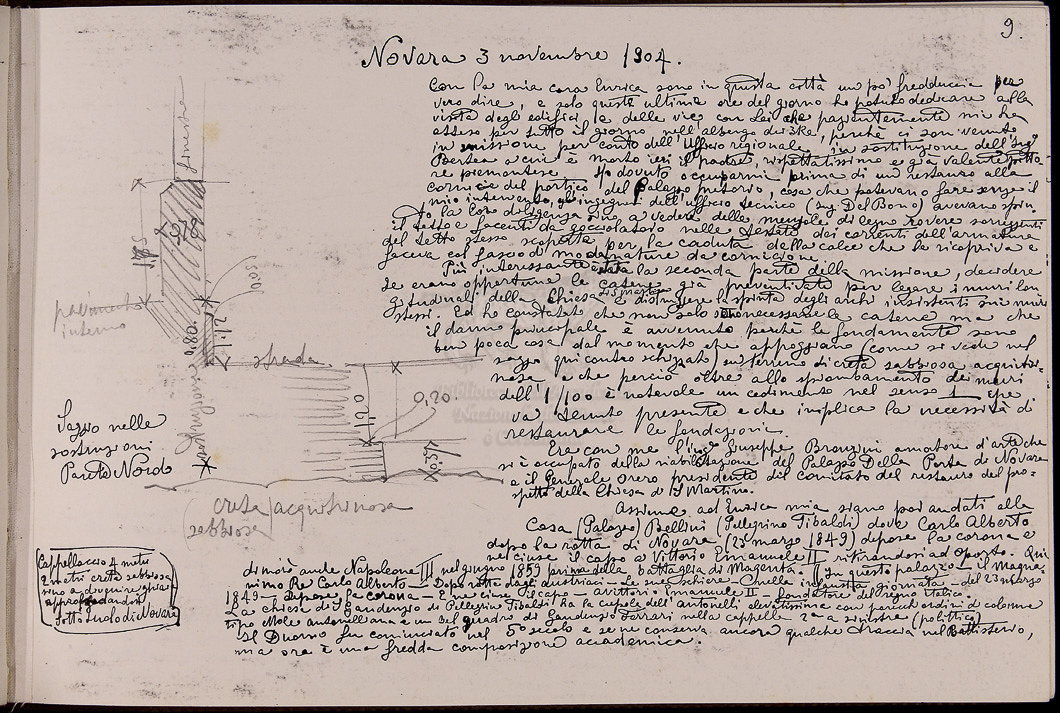 9.
Novara 3 novembre 1904.
Con la mia cara Enrica sono in questa città un po' fredduccia per
vero dire, e solo queste ultime ore del giorno ho potuto dedicare alla
visita degli edifici, e delle vie con Lei che pazientemente mi ha
atteso per tutto il giorno nell'albergo dei 3 Re, perché ci son venuto
in missione per conto dell'Ufficio regionale in sostituzione dell'Ing
Bertea a cui è morto ieri il padre, rispettatissimo e già valente pitto-
re piemontese. Ho dovuto occuparmi prima di un restauro alla
cornice del portico del Palazzo pretorio, cosa che potevano fare senza il
mio intervento, gli ingegneri dell'ufficio tecnico (sig. Del Bono) avevano spin-
to la loro diligenza sino a vedere delle mensole di legno rovere sorreggenti
il tetto e facenti da gocciolatoio nelle testate dei correnti dell'armatura
del tetto stesso scoperta per la caduta della calce che le ricopriva e
faceva col fascio di modanature da cornicione.
Più interessante è stata la seconda parte della missione, decidere
se erano opportune le catene già preventivate per legare i muri lon
gitudinali della Chiesa di S Martino e distruggere la spinta degli archi insistenti sui muri
stessi. Ed ho constatato che non solo sono necessarie le catene ma che
il danno principale è avvenuto perché le fondamenta sono
ben poca cosa dal momento che appoggiano (come si vede nel
saggio qui contro schizzato) su terreno di creta sabbiosa acquitri-
nosa e che perciò oltre allo spiombamento dei muri
dell' 1/100 è notevole un cedimento nel senso ⊥ che
va tenuto presente e che implica la necessità di
restaurare le fondazioni.
Era con me l'ing Giuseppe Bronzini amatore d'arte che
si è occupato della riabilitazione del Palazzo Della Porta di Novara
e il Generale Orero presidente del Comitato del restauro del pro-
spetto della Chiesa di S Martino.
Assieme ad Enrica mia siamo poi andati alla
Casa (Palazzo) Bellini (Pellegrino Tibaldi) dove Carlo Alberto
dopo la rotta di Novara (23 marzo 1849) depose la corona e
ne cinse il capo a Vittorio Emanuele II ritirandosi ad Oporto. Qui
dimorò anche Napoleone III nel giugno 1859 prima della battaglia di Magenta. "In questo palazzo – il magna-
nimo Re Carlo Alberto – Dopo rotte dagli austriaci – Le sue schiere – Nella infausta giornata – del 23 marzo
1849 – Depose la corona – E ne cinse il capo – a Vittorio Emanuele II – fondatore del regno Italico.
La chiesa di S Gaudenzio di Pellegrino Tibaldi ha la cupola dell'Antonelli elevatissima con parecchi ordini di colonne
tipo Mole antonelliana e un bel quadro di Gaudenzio Ferrari nella cappella 2a a sinistra (polittico)
Il Duomo fu cominciato nel 5° secolo e se ne conserva ancora qualche traccia nel Battistero,
ma ora è una fredda composizione accademica.
finestre
pavimento
interno
0,80
1,12
strada
1,90
0,20
0,57
sottofondazione
Saggio nelle
sostruzioni
Parete Nord
creta acquitrinosa
sabbiosa
Cappellaccio 4 metri
2 metri creta sabbiosa
sino a divenire ghiaia
approfondandosi
sottosuolo di Novara